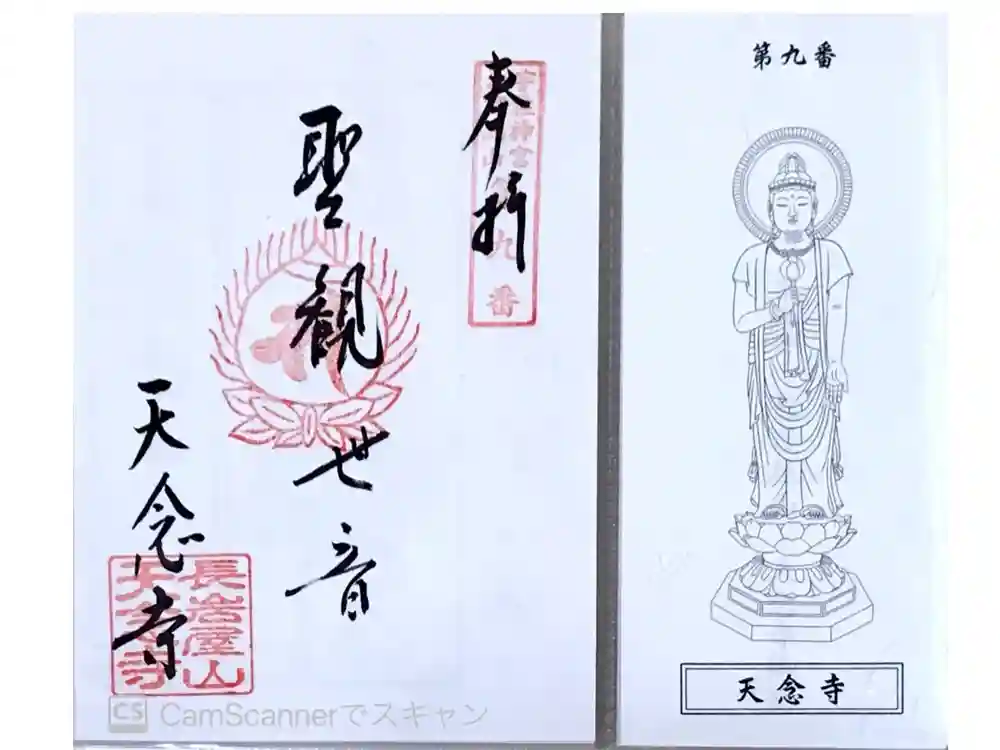 奉拝
聖観世音
天念寺
長岩屋山
天念寺
九番
CS CamScannerでスキャン
第九番
天念寺